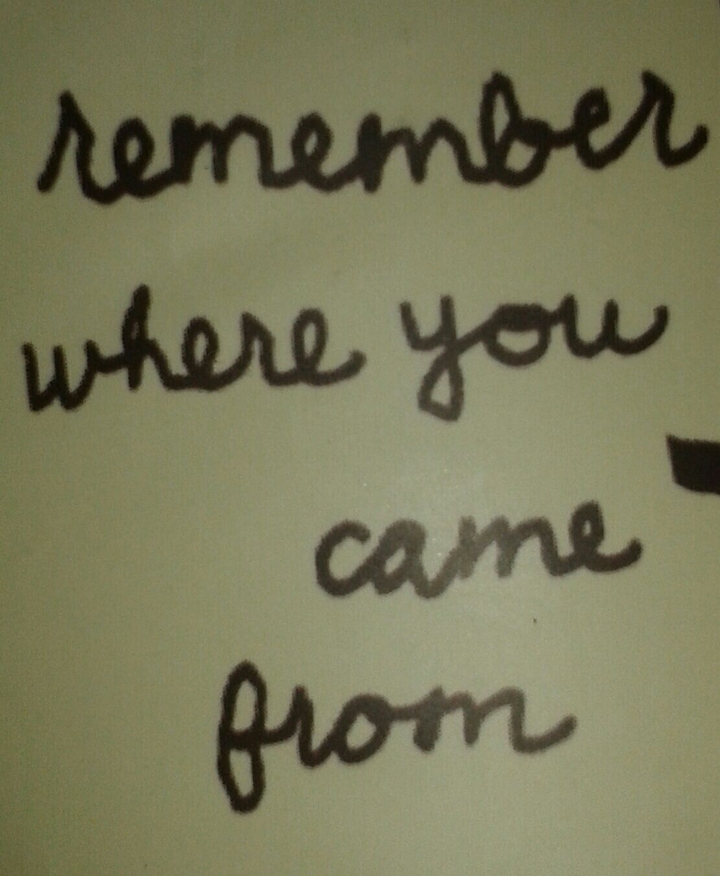 remember
where you
came
from